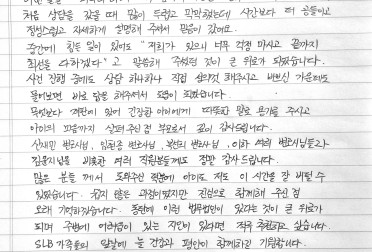 처음 상담을 갔을 때 많이 두렵고 막막했는데 시간보다 더 공들이고
정성스럽고 자세하게 설명해 주셔서 믿음이 갔어요.
중간에 힘든 일이 있어도 "저희가 있으니 너무 걱정 마시고 끝까지
최선을 다하겠다"고 말씀해 주셨던 것이 큰 위로가 되었습니다.
사건 진행 중에도 상담 하나하나 직접 살펴봐 주시고 바쁘신 가운데도
물어보면 바로 답을 해주셔서 도움이 되었습니다.
무엇보다 재판에 있어 긴장한 아이에게 따뜻한 말로 용기를 주시고
아이의 마음까지 살펴주신 점 부모로서 깊이 감사드립니다.
변호사님, 변호사님, 변호사님, 이하 여러 변호사님들과
비롯한 여러 직원분들께도 정말 감사드립니다.
많은 분들께서 도와주신 덕분에 아이도 저도 이 시간을 잘 버틸 수
있었습니다. 쉽지 않은 과정이었지만 진심으로 함께해 주신 점
오래 기억하겠습니다. 이런 법무법인이 있다는 것이 큰 위로가
되며 주변에 어려움이 있는 지인이 있다면 적극 추천하고 싶습니다.
SLB 가족들의 앞날에 늘 건강과 평안이 함께하길 기원합니다.